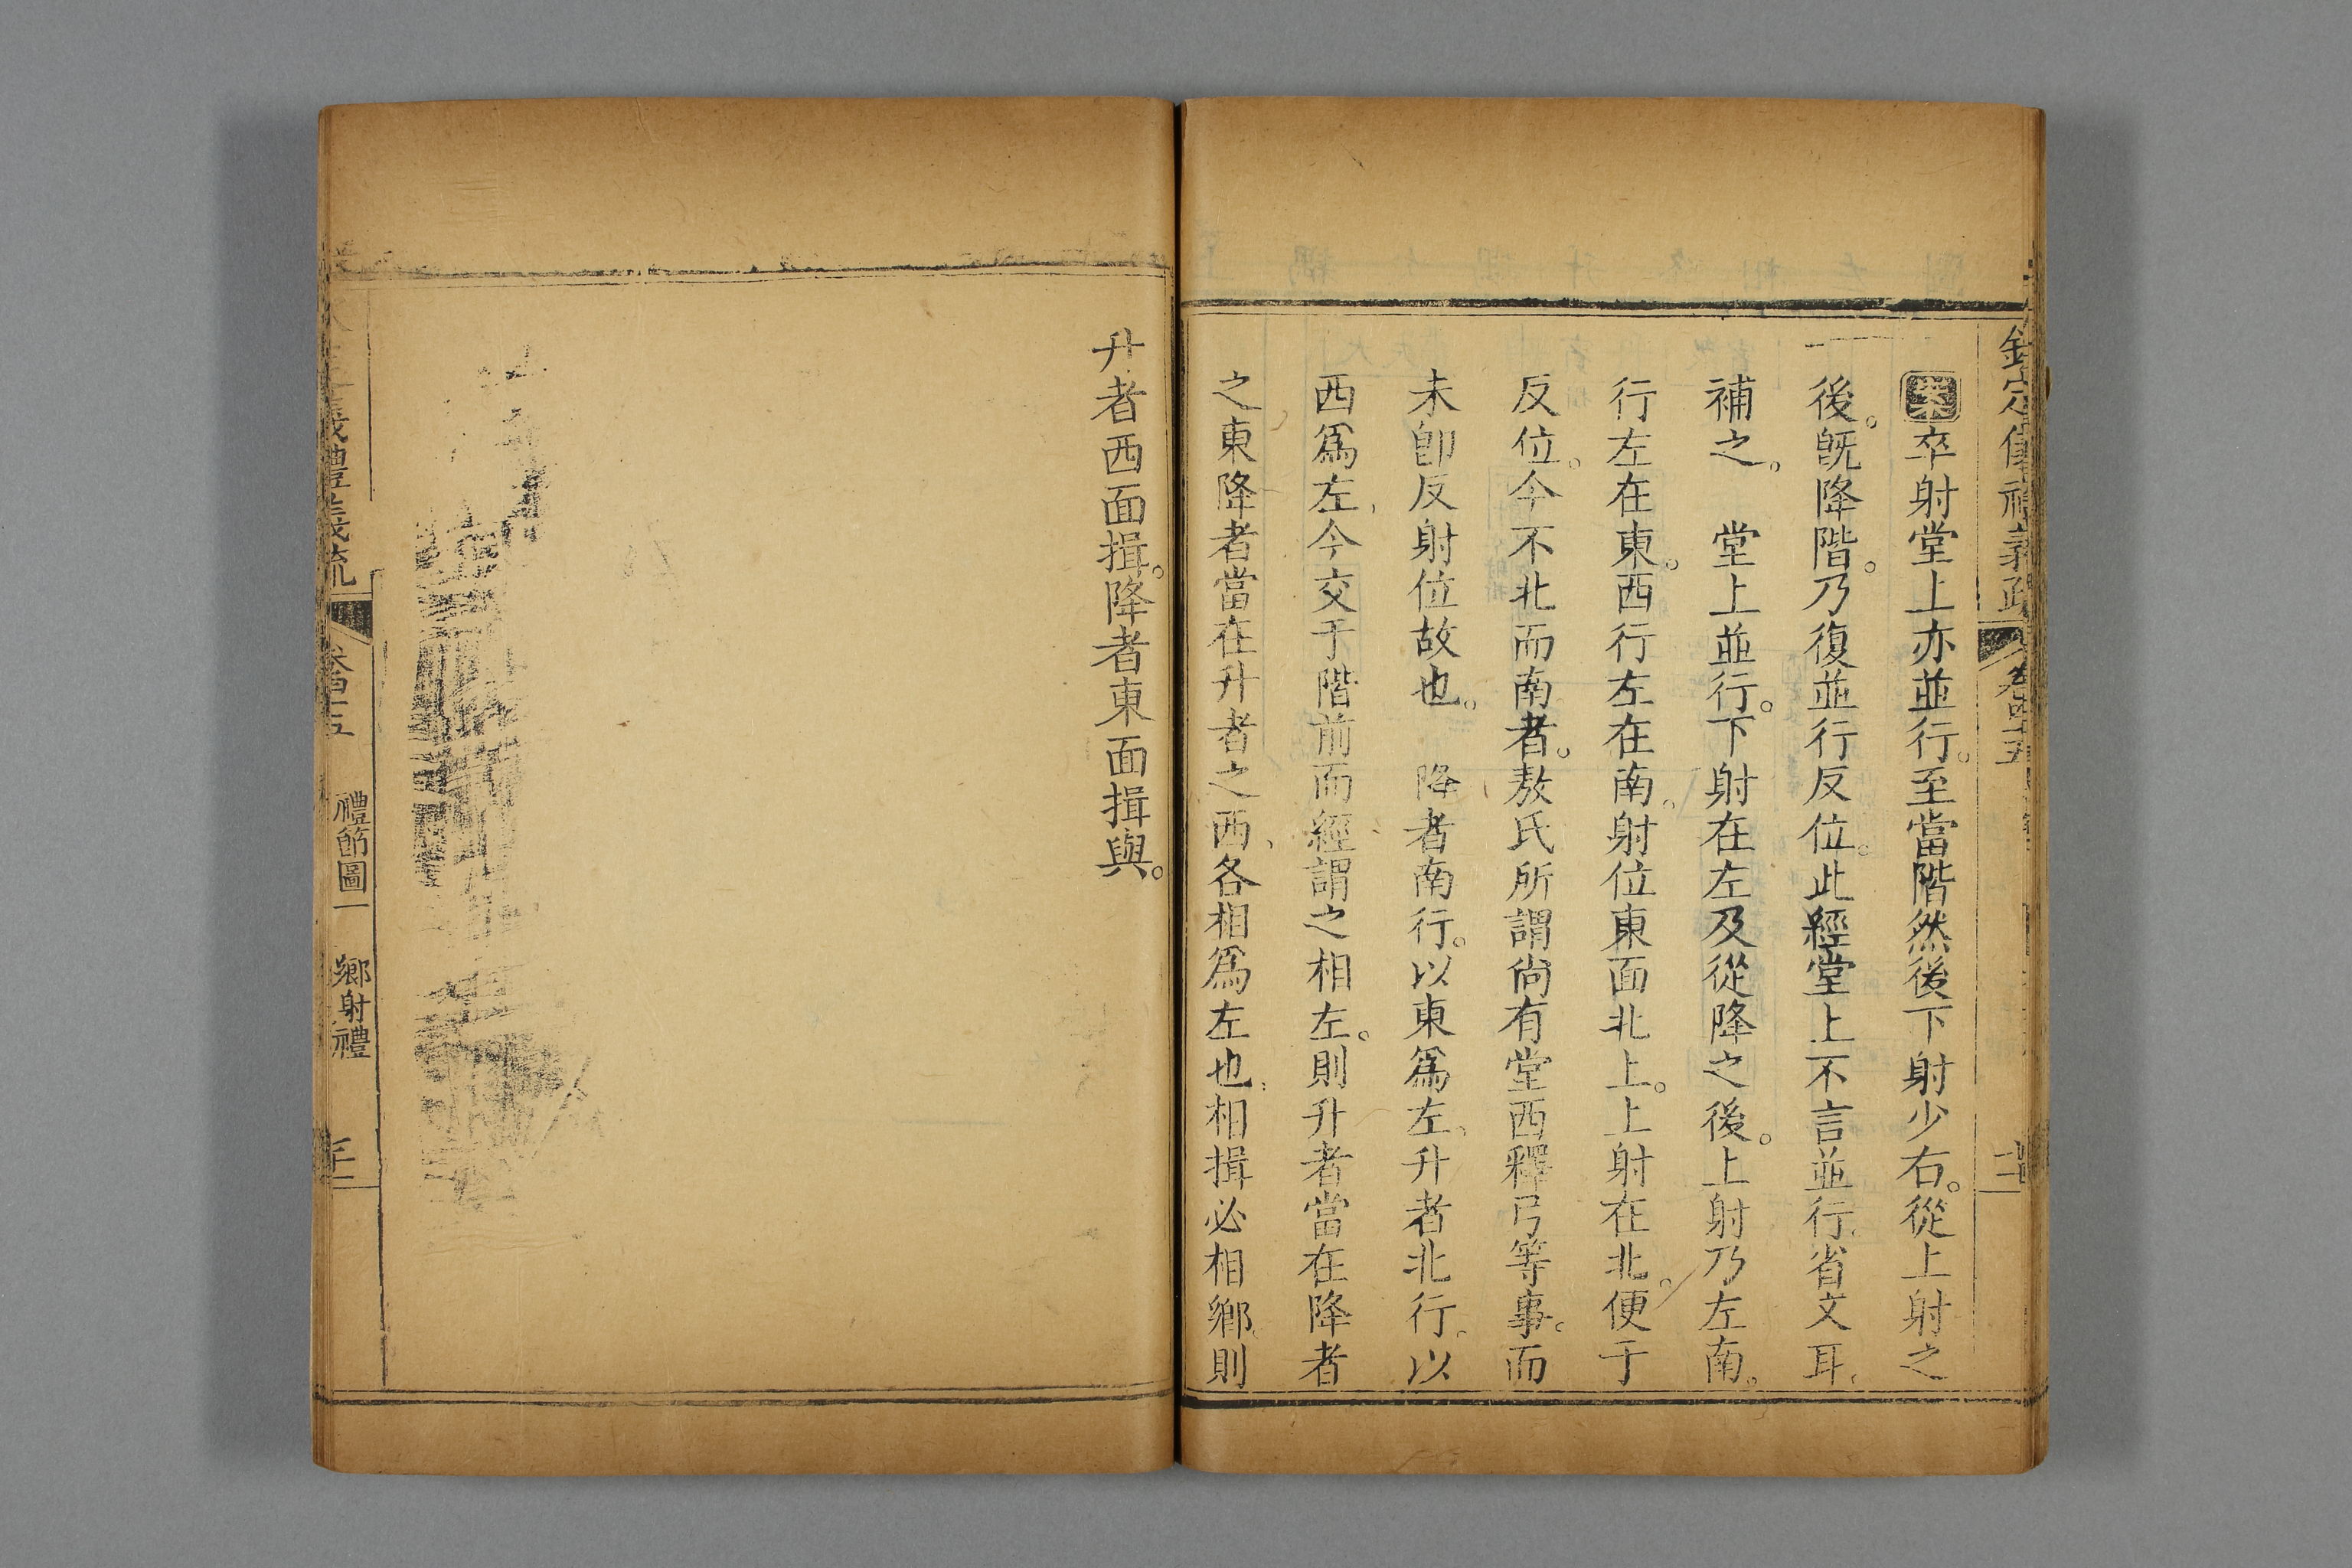 欽定儀禮義疏 卷四十五
案卒射堂上亦並行。至當階然後下射少右。從上射之
後。旣降階。乃復並行反位。此經堂上不言並行。省文耳。
補之。　堂上並行。下射在左及從降之後。上射乃左南。
行左在東。西行左在南。射位東面北上。上射在北。便于
反位。今不北而南者。敖氏所謂尙有堂西釋弓等事。而
未卽反射位故也。　降者南行。以東爲左。升者北行。以
西爲左、今交于階前而經謂之相左。則升者當在降者
之東降者當在升者之西、各相爲左也、相揖必相鄉。則
升者西面揖。降者東面揖與。
義禮義疏 卷四十五 禮節圖一 鄉射禮